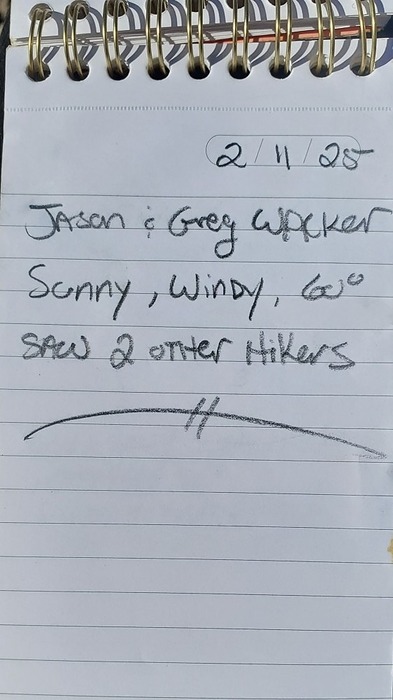 2/11/25
Jason & Greg Wacker
Sunny, Windy, 60°
SAW 2 other Hikers